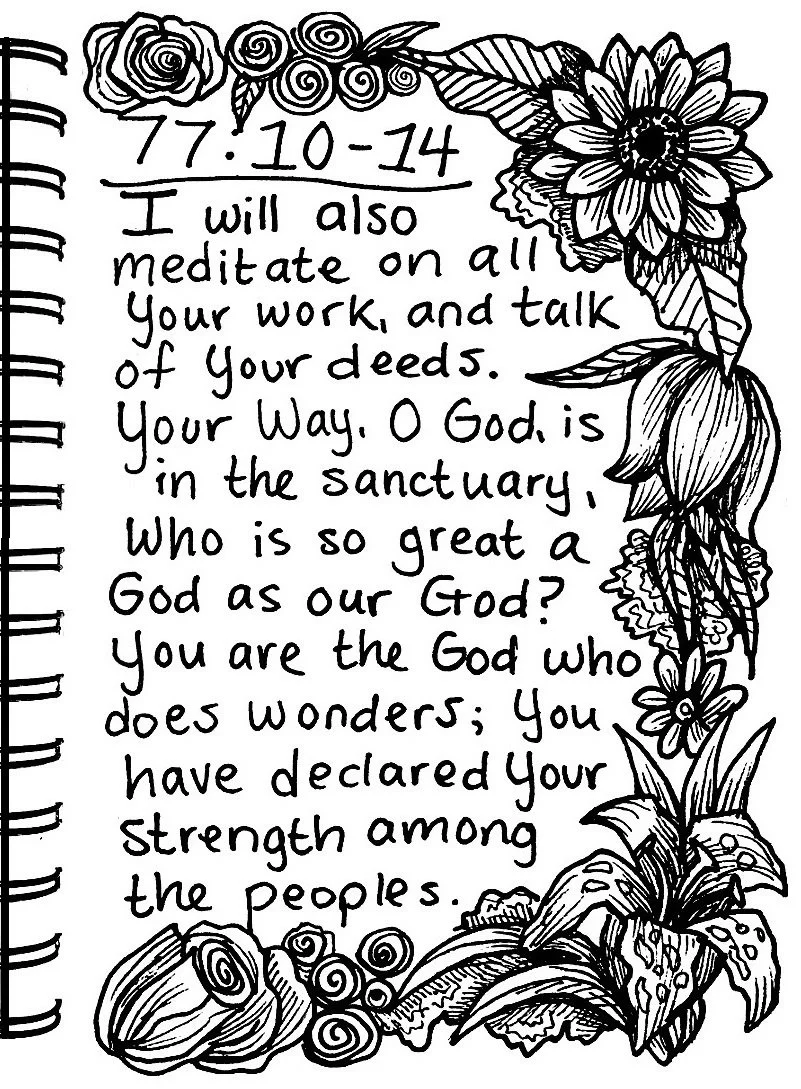 77:10-14
I will also
meditate on all
Your work, and talk
of Your deeds.
Your Way, O God, is
in the sanctuary,
Who is so great a
God as our God?
You are the God who
does wonders; You
have declared Your
strength among
the peoples.